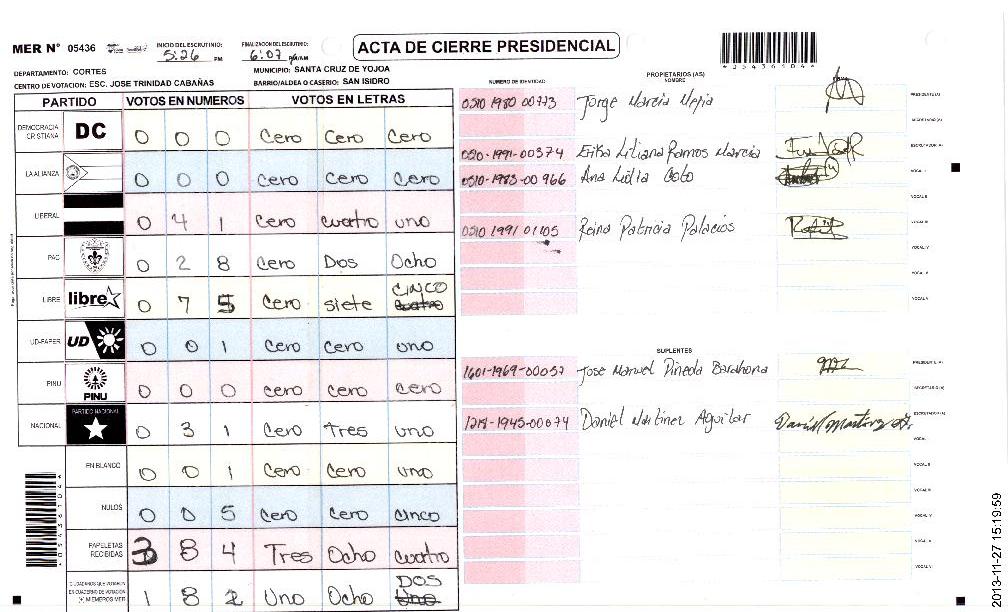 MER N° 05436
INICIO DEL ESCRUTINIO: 5:26 PM
FINALIZACION DEL ESCRUTINIO: 6:07 PM/AM
ACTA DE CIERRE PRESIDENCIAL
DEPARTAMENTO: CORTES
MUNICIPIO: SANTA CRUZ DE YOJOA
CENTRO DE VOTACION: ESC. JOSE TRINIDAD CABAÑAS
BARRIO/ALDEA O CASERIO: SAN ISIDRO
PARTIDO VOTOS EN NUMEROS VOTOS EN LETRAS
DEMOCRACIA CRISTIANA DC 0 0 0 Cero Cero Cero
LA ALIANZA 0 0 0 Cero Cero Cero
LIBERAL 0 4 1 Cero Cuatro uno
PAC 0 2 8 Cero Dos Ocho
LIBRE libre 0 7 5 Cero siete CINCO
UD-FAPER UD 0 0 1 Cero Cero uno
PINU PINU 0 0 0 Cero Cero Cero
NACIONAL PARTIDO NACIONAL 0 3 1 Cero Tres uno
EN BLANCO 0 0 1 Cero Cero uno
NULOS 0 0 5 Cero Cero Cinco
PAPELETAS RECIBIDAS 3 8 4 Tres Ocho Cuatro
CIUDADANOS QUE VOTARON EN CUADERNO DE VOTACION + MIEMBROS MER 1 8 2 Uno Ocho DOS
NUMERO DE IDENTIDAD
PROPIETARIOS (AS)
NOMBRE
FIRMA
0510 1980 00773 Jorge Marcia Mejia PRESIDENTE(A)
SECRETARIO (A)
Erika Liliana Ramos Marcia ESCRUTADOR (A)
0510-1983-00966 Ana Lidia Coto VOCAL I
VOCAL II
0510 1991 01105 Reina Patricia Palacios VOCAL III
VOCAL IV
VOCAL V
SUPLENTES
1601-1969-00057 Jose Manuel Pineda Barahona PRESIDENTE(A)
SECRETARIO (A)
1218-1945-00074 Daniel Martinez Aguilar ESCRUTADOR (A)
VOCAL I
VOCAL II
VOCAL III
VOCAL IV
VOCAL V
*05436104*
2013-11-27 15:19:59